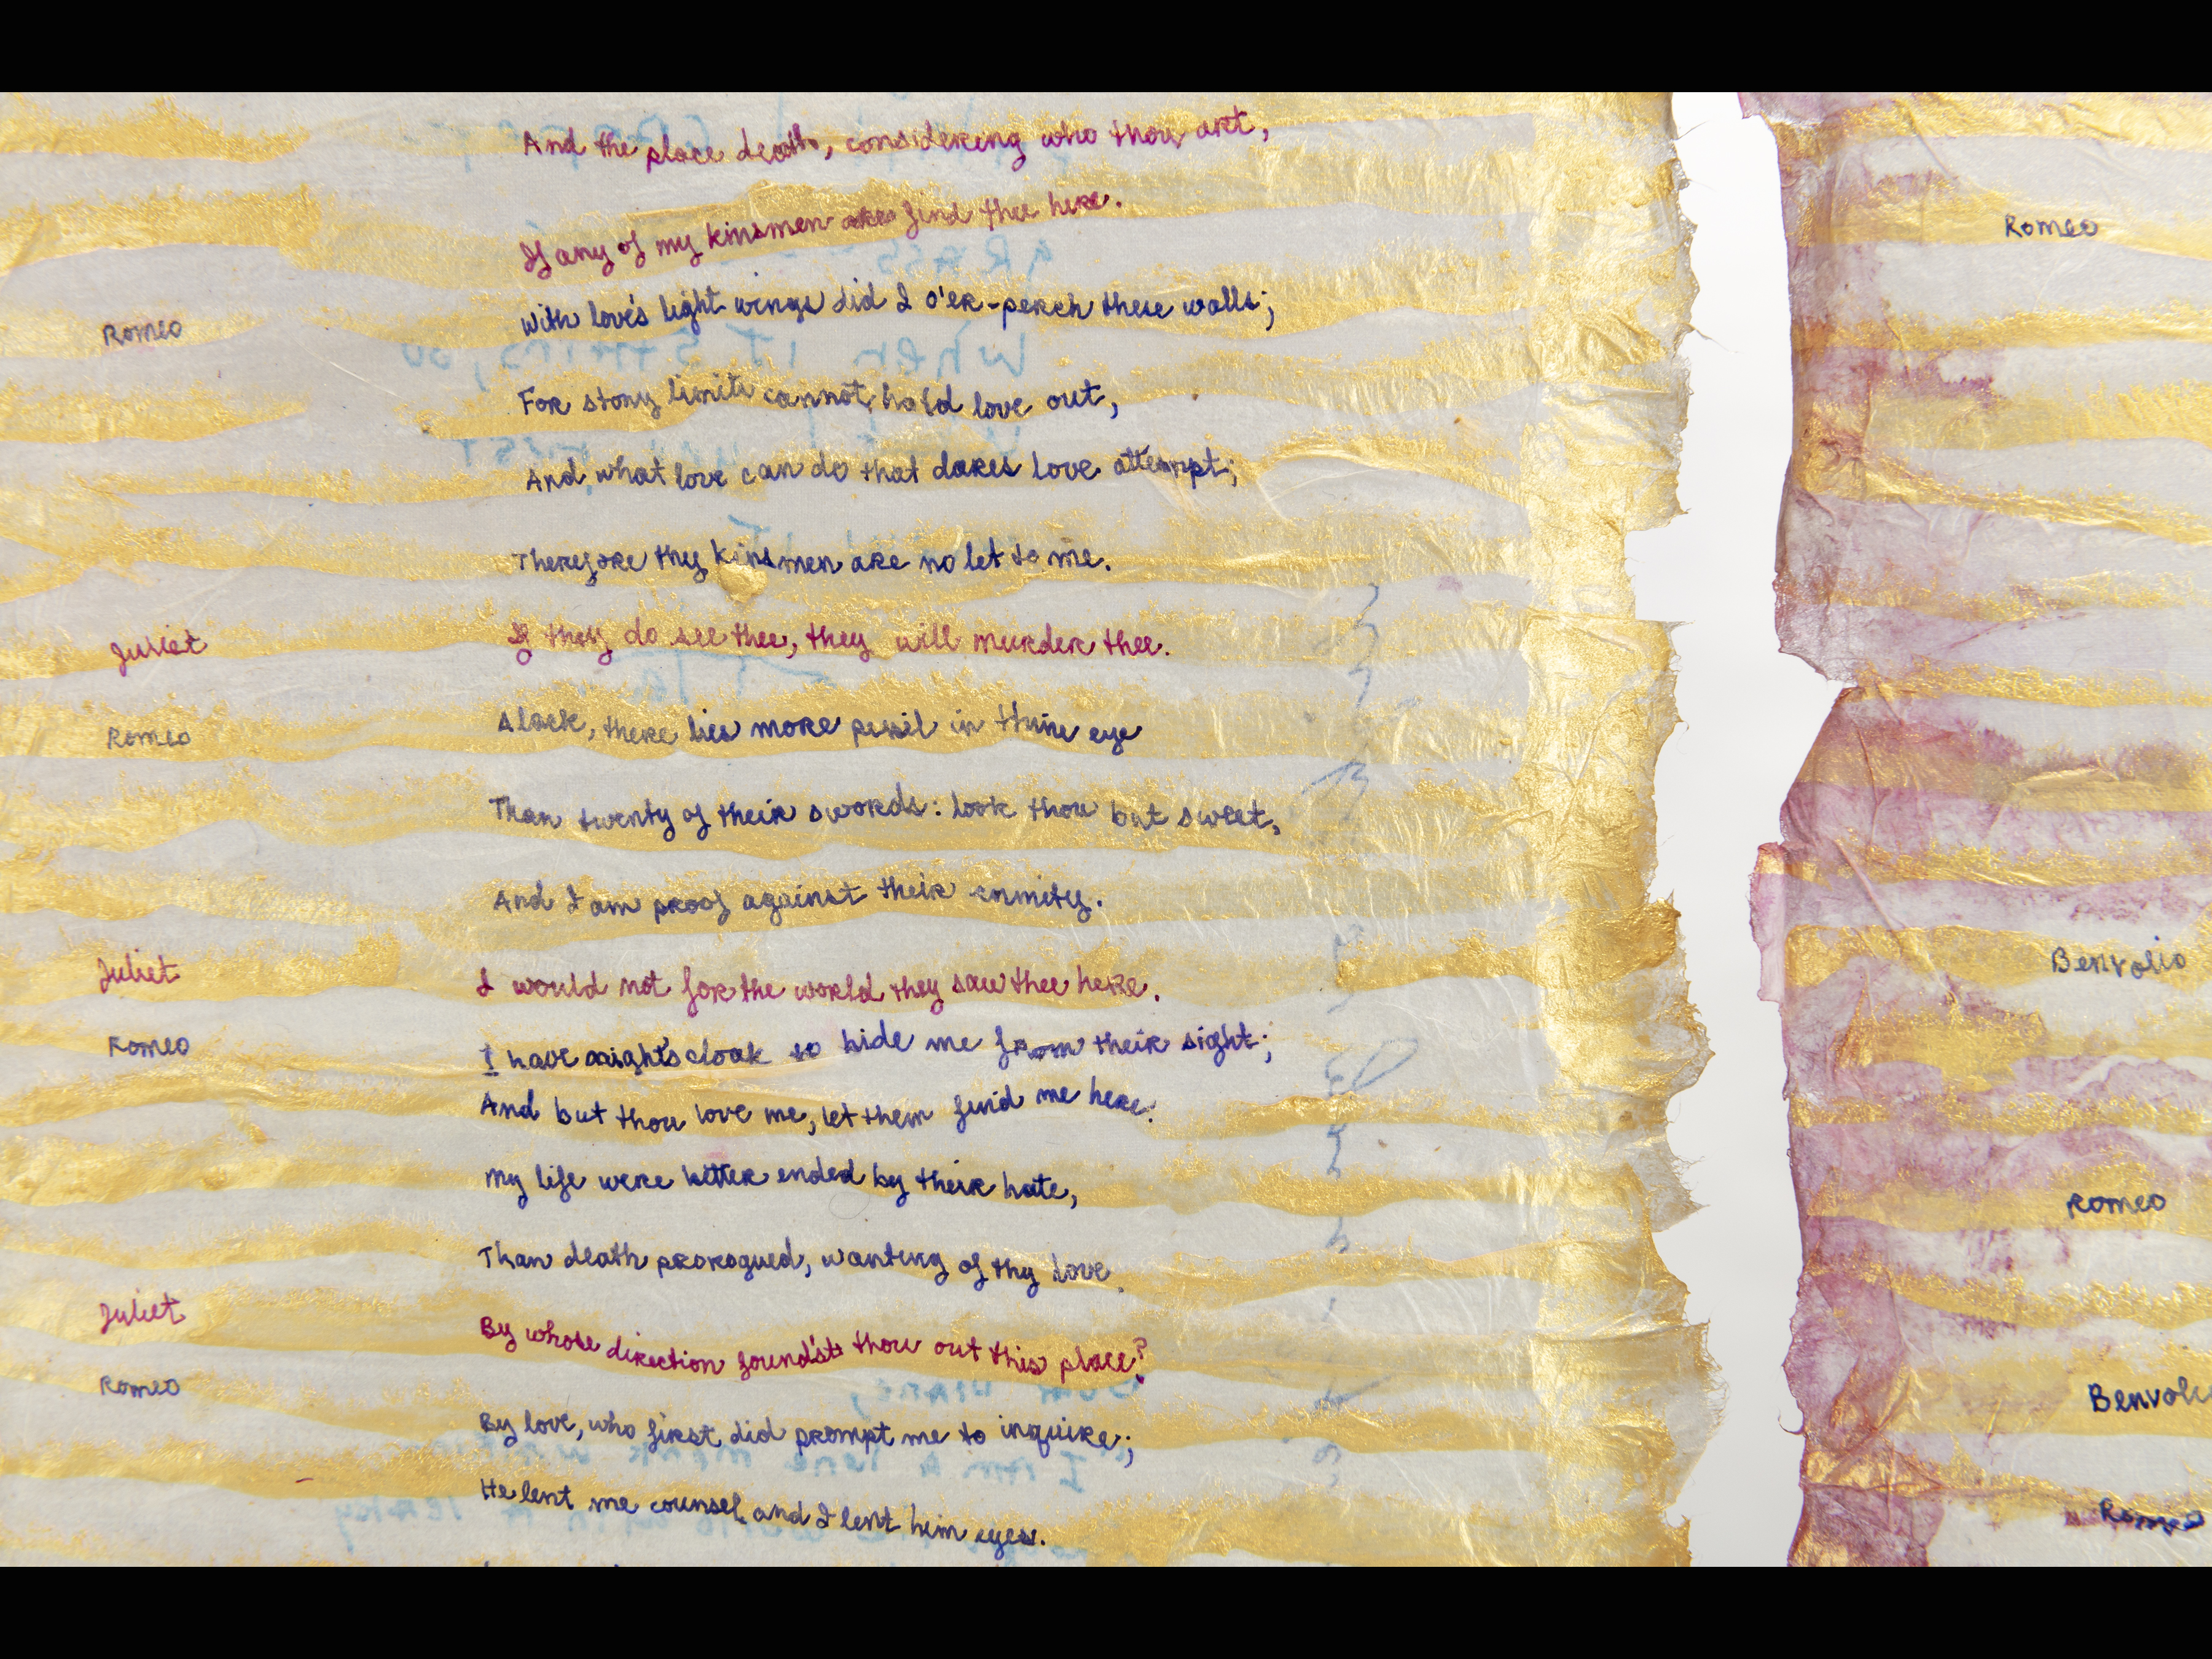 And the place death, considering who thou art,
If any of my kinsmen find thee here.
Romeo
With love's light wings did I o'er-perch these walls;
For stony limits cannot hold love out,
And what love can do that dares love attempt;
Therefore thy kinsmen are no let to me.
Juliet
If they do see thee, they will murder thee.
Romeo
Alack, there lies more peril in thine eye
Than twenty of their swords: look thou but sweet,
And I am proof against their enmity.
Juliet
I would not for the world they saw thee here.
Romeo
I have night's cloak to hide me from their sight;
And but thou love me, let them find me here:
My life were better ended by their hate,
Than death prorogued, wanting of thy love.
Juliet
By whose direction found'st thou out this place?
Romeo
By love, who first did prompt me to inquire;
He lent me counsel and I lent him eyes.
Romeo
Benvolio
Romeo
Benvoli
Romeo